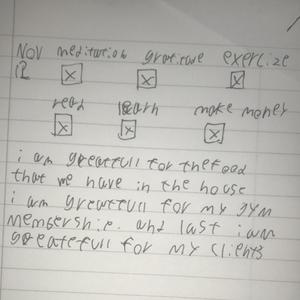 Nov meditation gratitude exercize
12 x x x
read learn make money
x x x
i am greatfull for thefood
that we have in the house
i am greatfull for my gym
membership. and last i am
greatefull for my clients